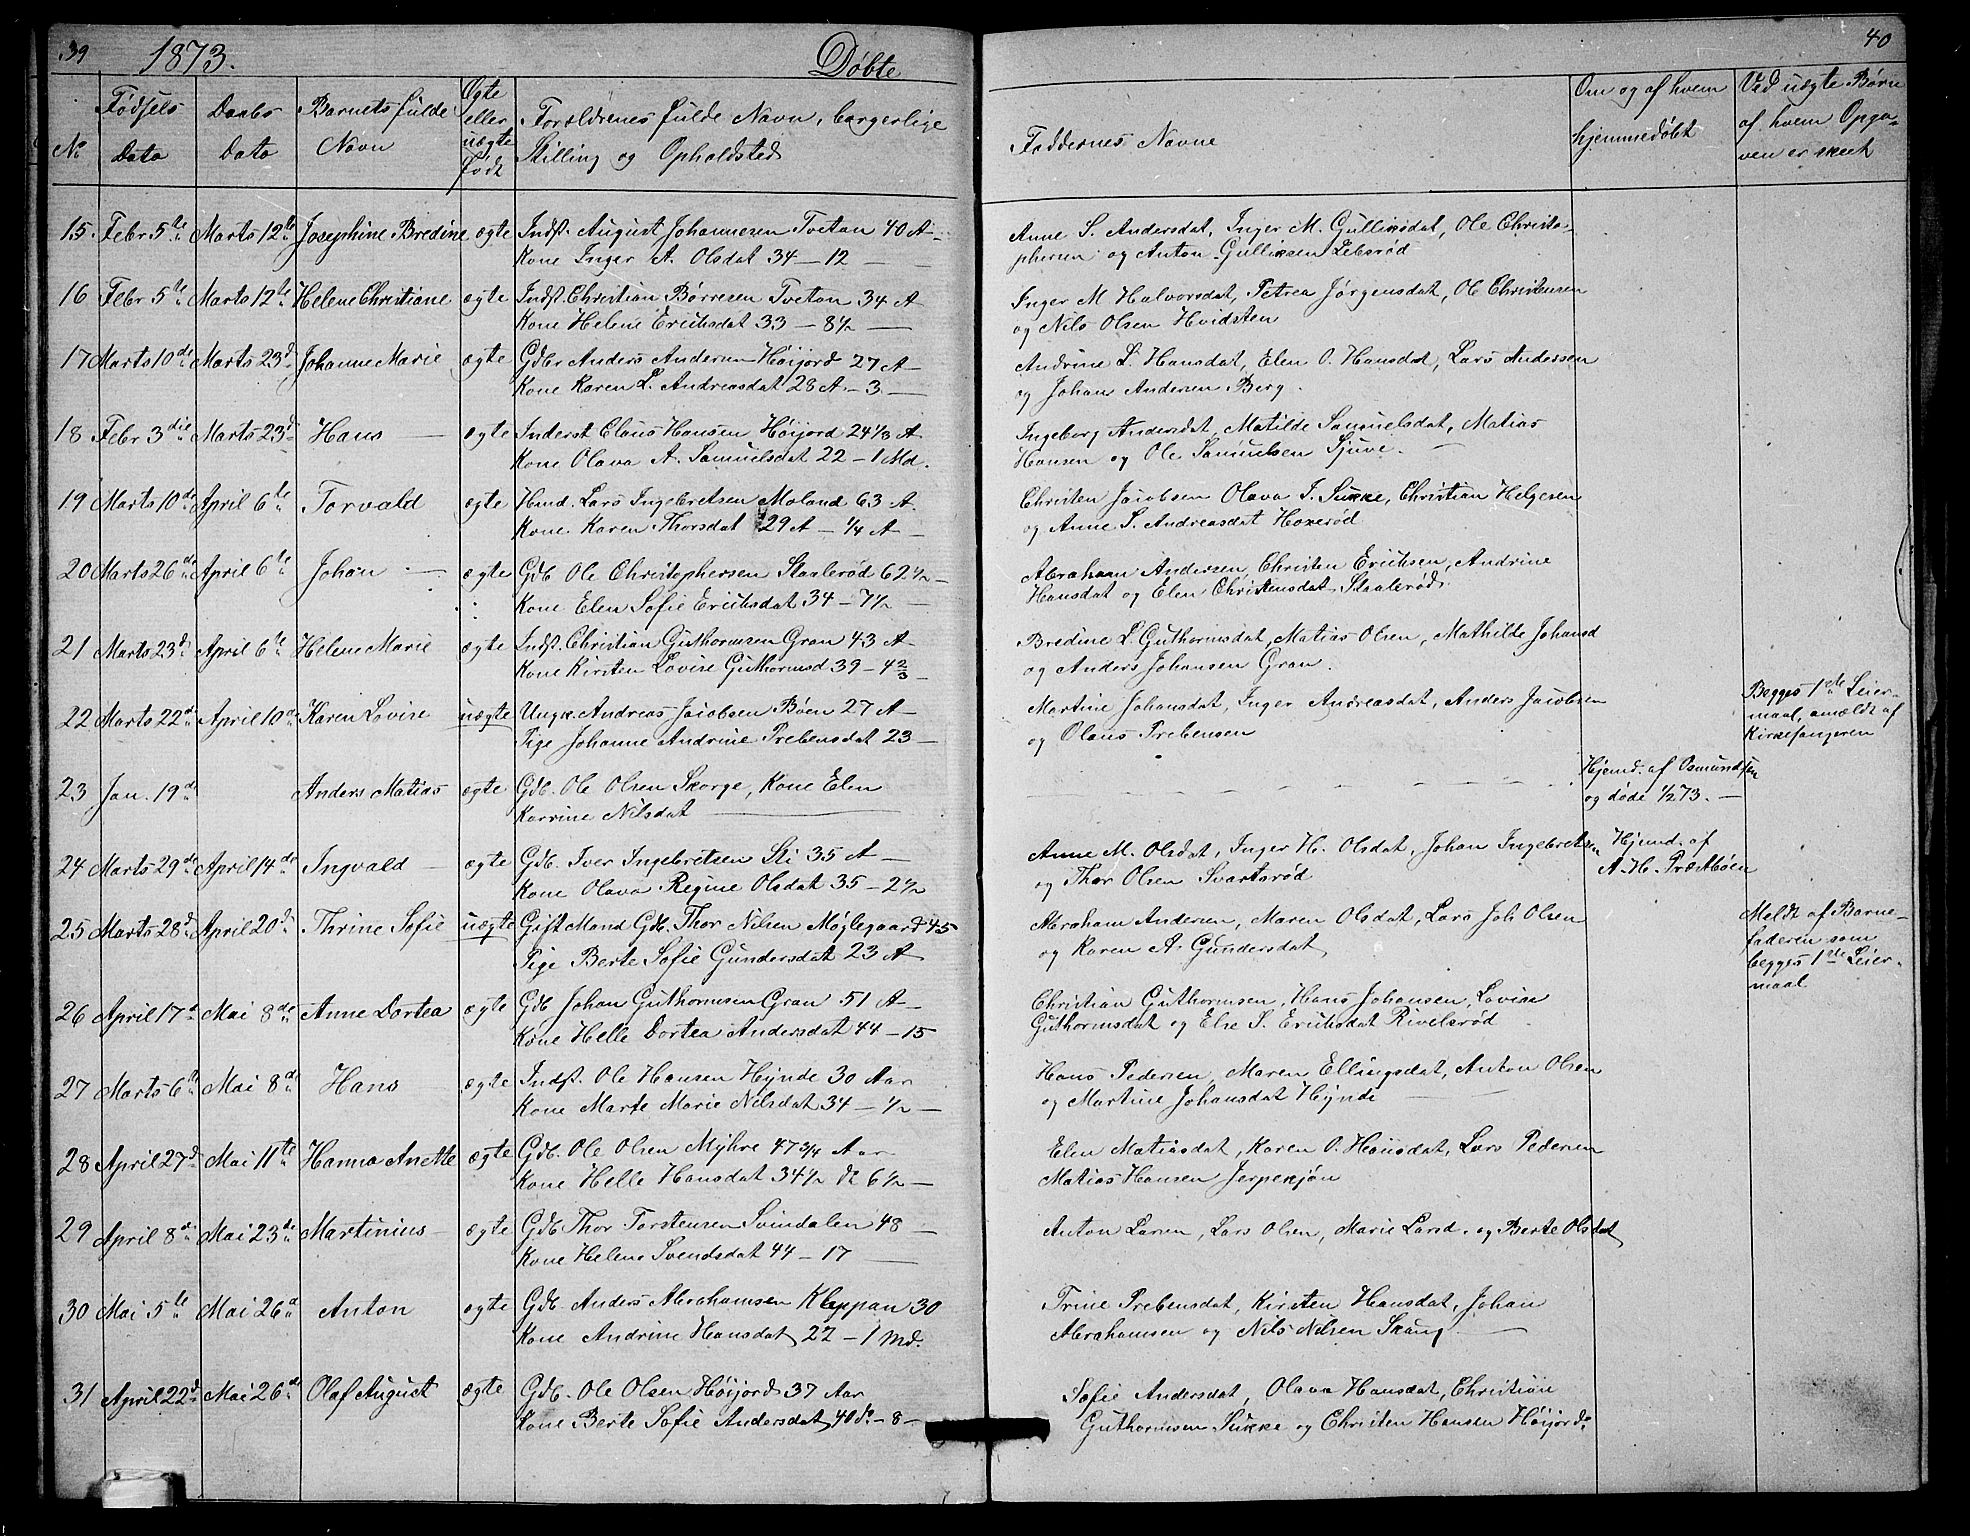 39 1873. Døbte 40
No Fødsels Data Daabs Data Barnets fulde Navn Ægte eller uægte født Forældrenes fulde Navn, borgerlige Stilling og Opholdsted Faddernes Navne Om og af hvem hjemmedøbt Ved uægte Børn af hvem Opgaven er skeet
15. Febr 5te Marts 12te Josephine Bredine ægte Indst. August Johannesen Tveten 40 A – Anne S. Andersdat, Inger M. Gulliksdat, Ole Christo-
Kone Inger A. Olsdat 34 – 12 — phersen og Anton Gulliksen Lebsrød
16 Febr 5te Marts 12te Helene Christiane ægte Indst. Christian Børresen Tveten 34 A Inger M Halvorsdat, Petrea Jørgensdat, Ole Christensen
Kone Helene Eriksdat 33 – 8½ — og Nils Olsen Hvidsten
17 Marts 10de Marts 23d Johanne Marie ægte Gdbr Anders Andersen Høijord 27 A – Andrine L. Hansdat, Elen O. Hansdat, Lars Anderssen
Kone Karen L. Andreasdat 28 A – 3 — og Johan Andersen Berg.
18 Febr 3die Marts 23d Hans — ægte Inderst Claus Hansen Høijord 24⅓ A Ingeborg Andersdat, Matilde Samuelsdat, Matias
Kone Olava A. Samuelsdat 22 – 1 Md. Hansen og Ole Samuelsen Sjuve. —
19 Marts 10de April 6te Torvald ægte Hmd. Lars Ingebretsen Moland 63 A. Christen Jacobsen Olava I. Sukke, Christian Helgesen
Kone Karen Thorsdat 29 A – ¼ A – og Anne S. Andreasdat Hoxerød
20 Marts 26de April 6te Johan — ægte Gdb. Ole Christophersen Staalerød 62½ – Abraham Andersen, Christen Eriksen, Andrine
Kone Elen Sofie Eriksdat 34 – 7½ — Hansdat og Elen Christensdat Staalerød.
21 Marts 23d April 6te Helene Marie ægte Indst. Christian Guthormsen Gran 43 A – Bredine L. Guthormsdat, Matias Olsen, Mathilde Johansd
Kone Kirsten Lovise Guthormsd 39 – 4⅔ og Anders Johansen Gran.
22 Marts 22de April 10de Karen Lovise uægte Ungk. Andreas Jacobsen Bøen 27 A – Martine Johansdat, Inger Andreasdat, Anders Jacobsen Begges 1ste Leier-
Pige Johanne Andrine Prebensdat 23 — og Olaus Prebensen maal, anmeldt af
Kirkesangeren
23 Jan. 19de Anders Matias ægte Gdb. Ole Olsen Skorge, Kone Elen Hjemd. af Osmundsen
Karrine Nilsdat — og døde ½ 73. —
24 Marts 29de April 14de Ingvald – ægte Gdb. Iver Ingebretsen Sti 35 A – Anne M. Olsdat, Inger H. Olsdat, Johan Ingebretsen Hjemd. af
Kone Olava Regine Olsdat 35 – 2½ og Thor Olsen Svartsrød A. H. Præstbøen
25 Marts 28de April 20de Thrine Sofie uægte Gift Mand Gdb. Thor Nilsen Møjlegaard 45 Abraham Andersen, Maren Olsdat, Lars Joh. Olsen Meldt af Barne-
Pige Berte Sofie Gundersdat 23 A og Karen A. Gundersdat faderen som
begges 1ste Leier-
maal
26 April 17d Mai 8de Anne Dortea ægte Gdb. Johan Guthormsen Gran 51 A – Christian Guthormsen, Hans Johansen, Lovise
Kone Helle Dortea Andersdat 44 – 15 Guthormsdat og Else S. Eriksdat Rivelsrød
27 Marts 6te Mai 8de Hans ægte Indst. Ole Hansen Hynde 30 Aar Hans Pedersen, Maren Ellingsdat, Anton Olsen
Kone Marte Marie Nilsdat 34 – ½ – og Martine Johansdat Hynde —
28 April 27d Mai 11te Hanna Anette ægte Gdb. Ole Olsen Myhre 47¾ Aar Elen Matiasdat, Karen O. Hansdat, Lars Pedersen
Kone Helle Hansdat 34½ do 6½ – Matias Hansen Jerpekjøn
29 April 8de Mai 23de Martinius – ægte Gdb. Thor Torstensen Svindalen 48 — Anton Larsen, Lars Olsen, Marie Larsd. og Berte Olsdat
Kone Helene Svendsdat 44 – 17 —
30 Mai 5te Mai 26de Anton ægte Gdb. Anders Abrahamsen Kleppan 30 Trine Prebensdat, Kirsten Hansdat, Johan
Kone Andrine Hansdat 22 – 1 md. Abrahamsen og Nils Nilsen Skaug. —
31 April 22de Mai 26de Olaf August ægte Gdb. Ole Olsen Høijord 37 Aar Sofie Andersdat, Olava Hansdat, Christian
Kone Berte Sofie Andersdat 40 do – 8 – Guthormsen Sukke og Christen Hansen Høijord.